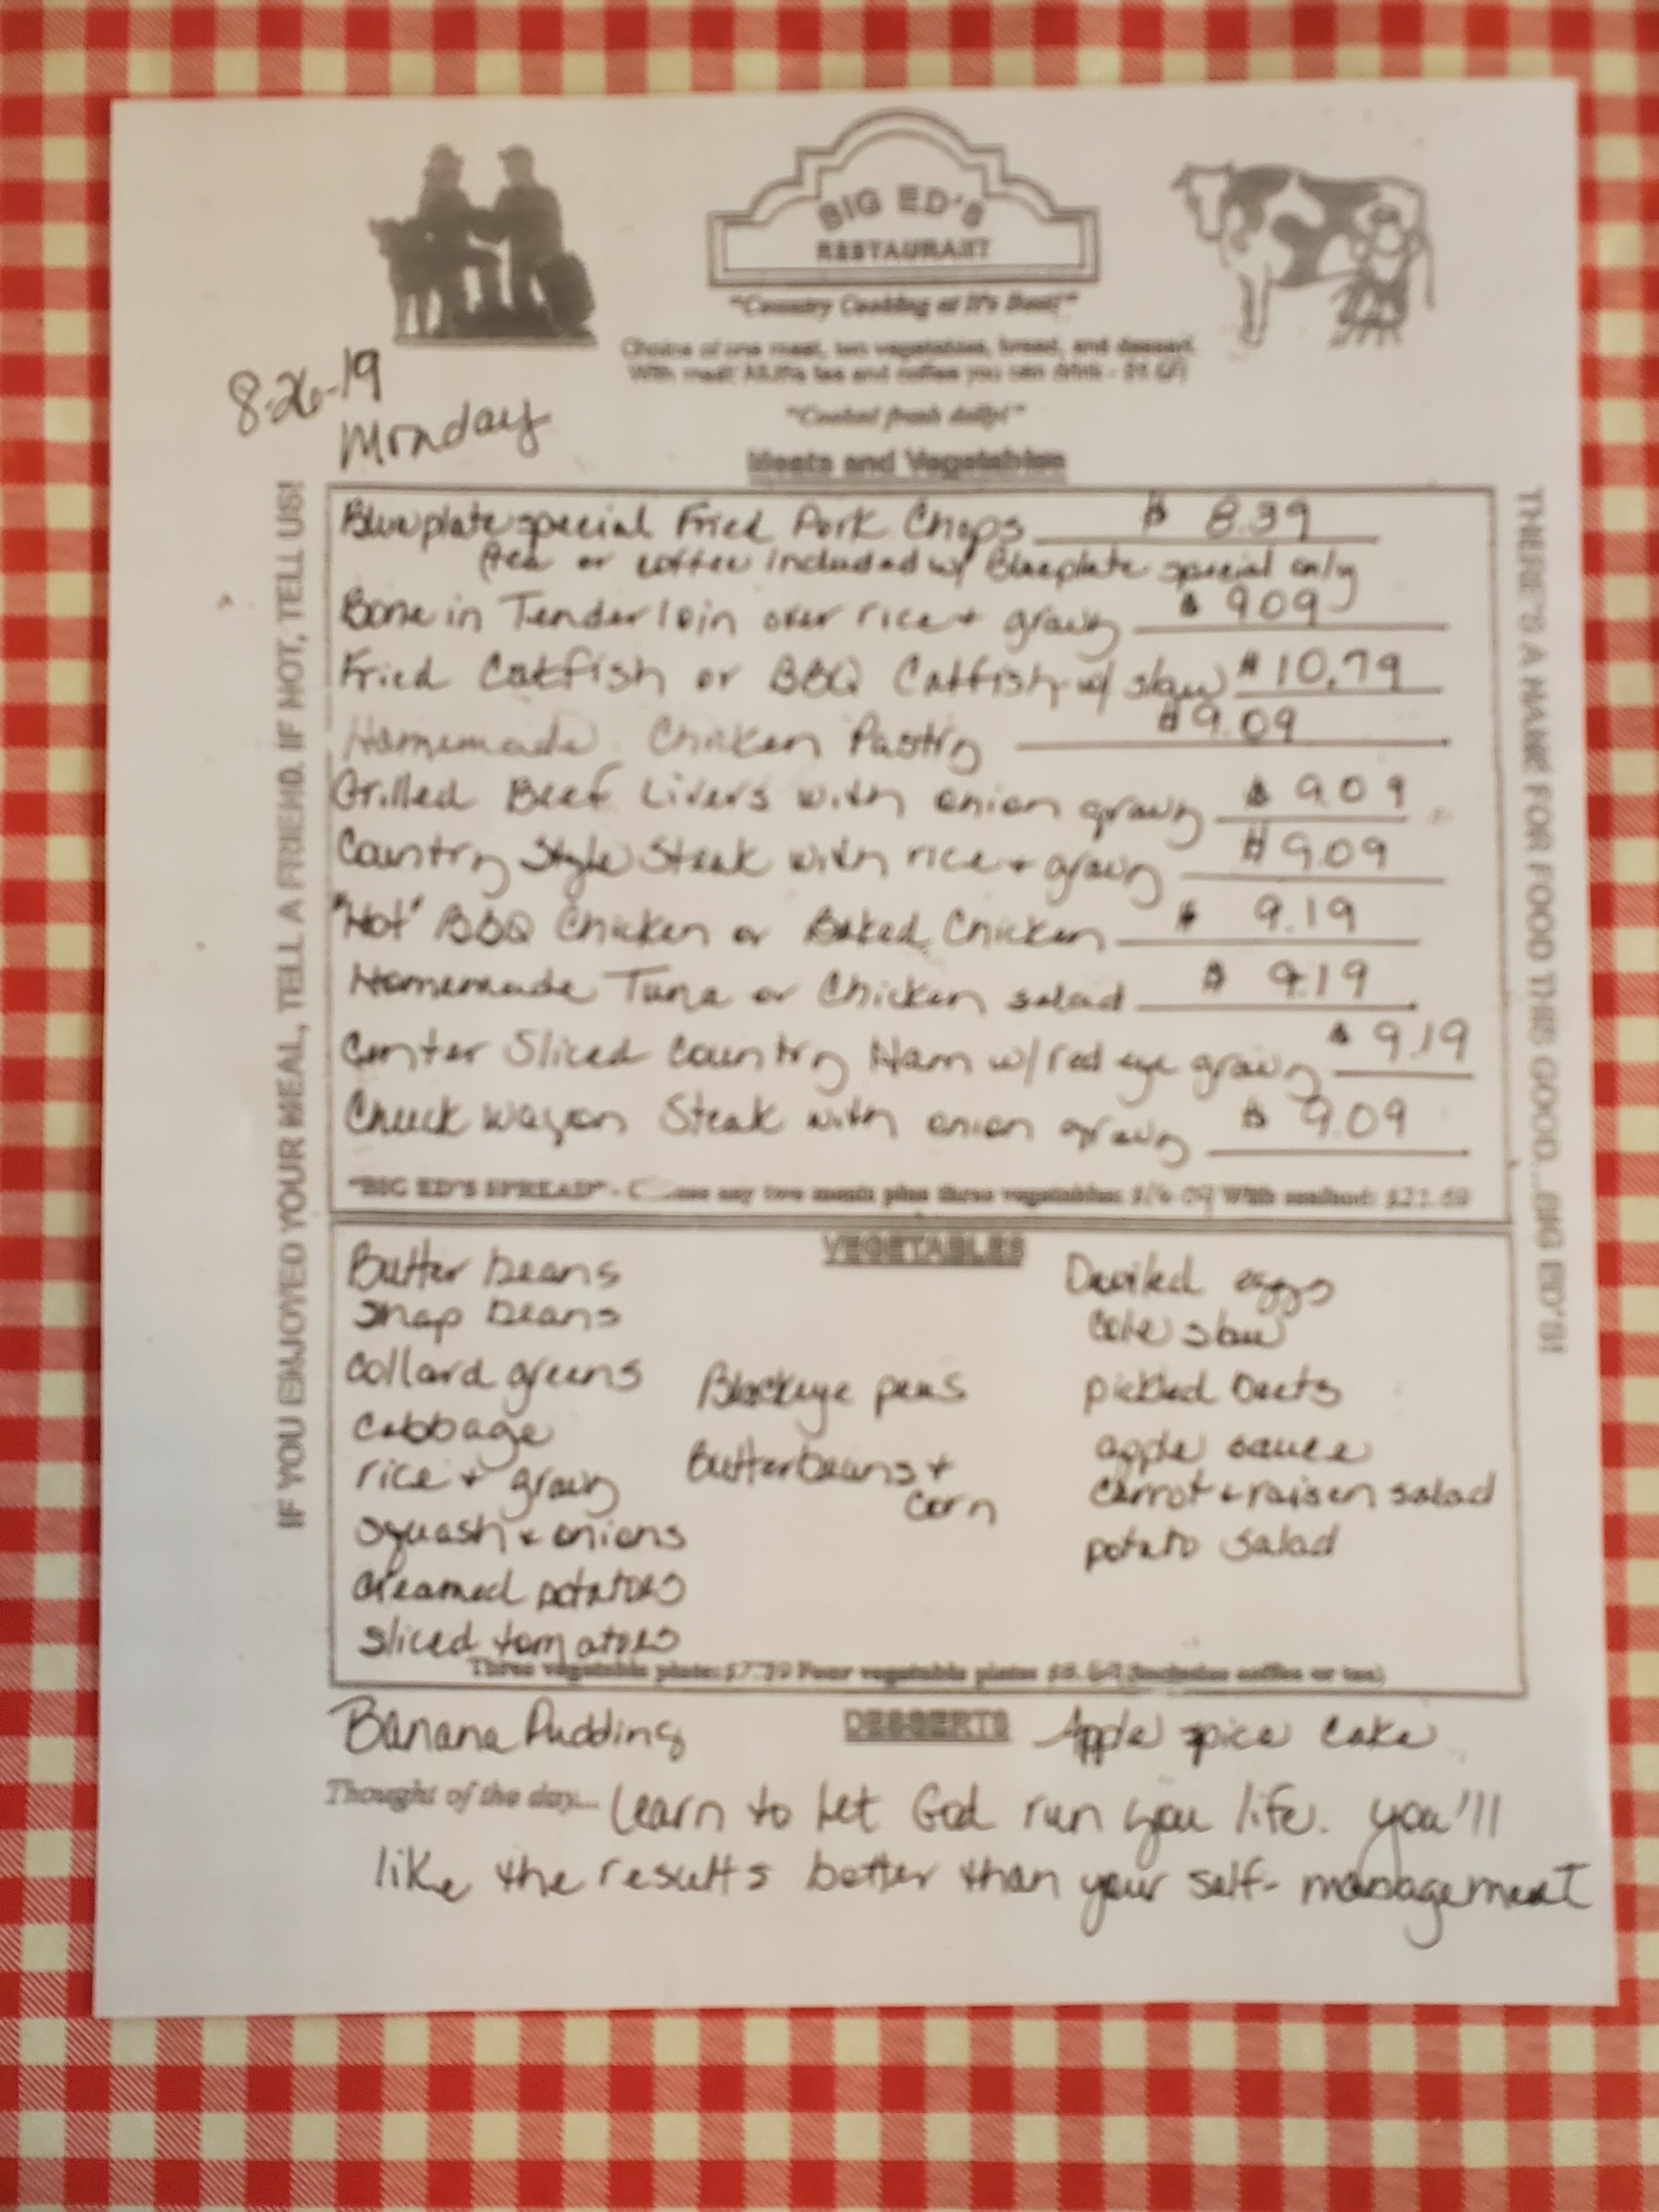 BIG ED'S
RESTAURANT
"Country Cooking at It's Best!"
Choice of one meat, two vegetables, bread, and dessert.
With meal: All the tea and coffee you can drink -
"Cooked fresh daily!"
8-26-19
Monday
Meats and Vegetables
IF YOU ENJOYED YOUR MEAL, TELL A FRIEND. IF NOT, TELL US!
Blueplate special Fried Pork Chops $ 8.39
(tea or coffee included w/ Blueplate special only
Bone in Tenderloin over rice + gravy $ 9.09
Fried Catfish or BBQ Catfish w/ slaw $10.79
Homemade Chicken Pastry $9.09
Grilled Beef Livers with onion gravy $ 9.09
Country Style Steak with rice + gravy $9.09
"Hot" BBQ Chicken or Baked Chicken $ 9.19
Homemade Tuna or Chicken salad $ 9.19
Center Sliced Country Ham w/ red eye gravy $ 9.19
Chuck wagon Steak with onion gravy $ 9.09
"BIG ED'S SPREAD" - any two meats plus three vegetables: With seafood:
THERE'S A NAME FOR FOOD THIS GOOD...BIG ED'S!
VEGETABLES
Butter beans
snap beans
collard greens
cabbage
rice + gravy
squash + onions
creamed potatoes
sliced tomatoes
Blackeye peas
Butterbeans +
corn
Deviled eggs
cole slaw
pickled beets
apple sauce
carrot + raisen salad
potato salad
Three vegetable plate: Four vegetable plate: (includes coffee or tea)
DESSERTS
Banana Pudding
Apple spice cake
Thought of the day... learn to let God run you life. you'll
like the results better than your self-management